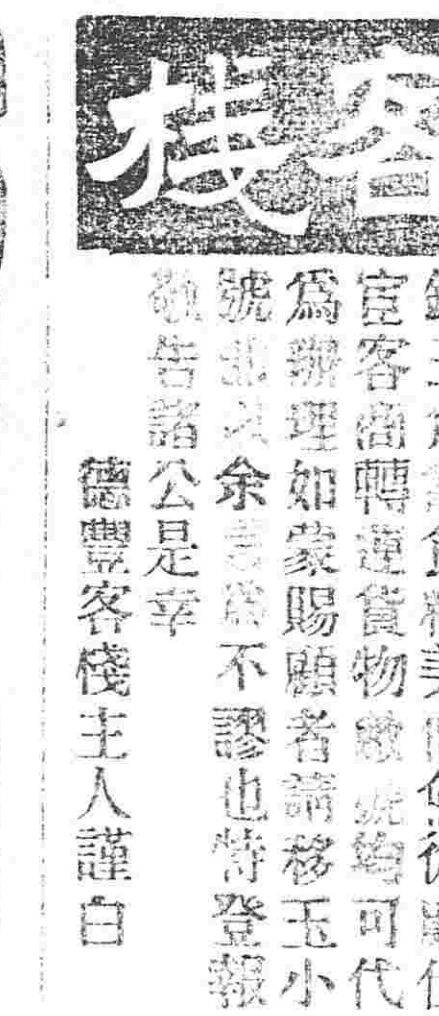 客棧
宦客商轉運貨物敝號均可代
爲辦理如蒙賜顧者請移玉小
號余言爲不謬也特登報
敬告諸公是幸
德豐客棧主人謹白